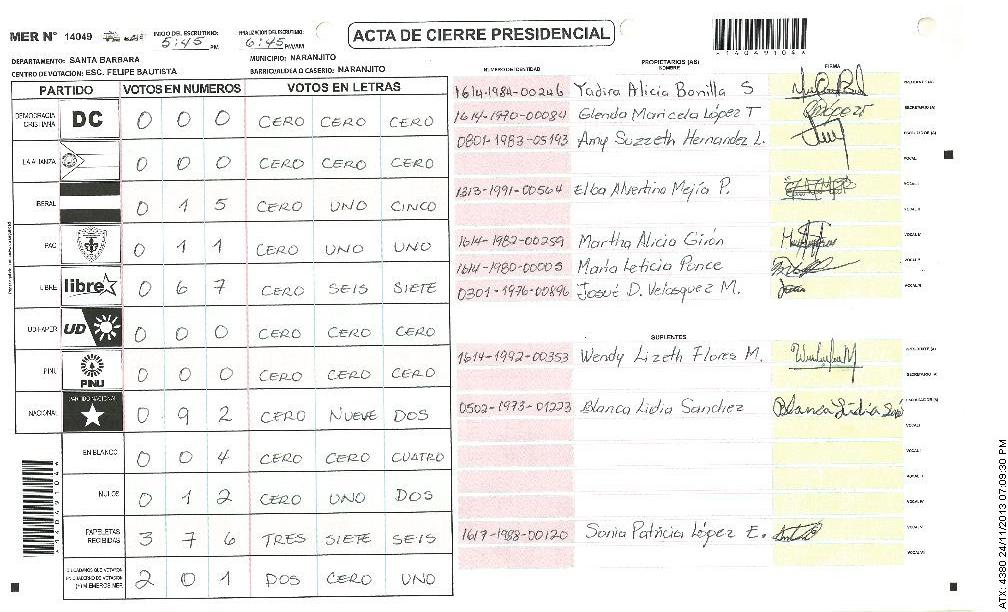 MER N° 14049
INICIO DEL ESCRUTINIO: 5:45 PM
FINALIZACION DEL ESCRUTINIO: 6:45 PM/AM
ACTA DE CIERRE PRESIDENCIAL
*14049104*
DEPARTAMENTO: SANTA BARBARA
MUNICIPIO: NARANJITO
CENTRO DE VOTACION: ESC. FELIPE BAUTISTA
BARRIO/ALDEA O CASERIO: NARANJITO
PARTIDO VOTOS EN NUMEROS VOTOS EN LETRAS
DEMOCRACIA CRISTIANA DC 0 0 0 CERO CERO CERO
LA ALIANZA 0 0 0 CERO CERO CERO
LIBERAL 0 1 5 CERO UNO CINCO
PAC 0 1 1 CERO UNO UNO
LIBRE libre 0 6 7 CERO SEIS SIETE
UD-FAPER UD 0 0 0 CERO CERO CERO
PINU PINU 0 0 0 CERO CERO CERO
NACIONAL PARTIDO NACIONAL 0 9 2 CERO NUEVE DOS
EN BLANCO 0 0 4 CERO CERO CUATRO
NULOS 0 1 2 CERO UNO DOS
PAPELETAS RECIBIDAS 3 7 6 TRES SIETE SEIS
CIUDADANOS QUE VOTARON 2 0 1 DOS CERO UNO
*14049104*
NUMERO DE IDENTIDAD
PROPIETARIOS (AS)
NOMBRE
FIRMA
1614-1984-00246 Yadira Alicia Bonilla S
1614-1970-00084 Glenda Maricela López T
SECRETARIO (A)
0801-1983-05193 Amy Suzzeth Hernandez L.
VOCAL I
1313-1991-00564 Elba Alvertina Mejía P.
1614-1982-00259 Martha Alicia Girón
1614-1980-00005 María Leticia Ponce
0301-1976-00896 Josué D. Velasquez M.
SUPLENTES
1614-1992-00353 Wendy Lizeth Flores M.
SECRETARIO (A)
0502-1973-01223 Blanca Lidia Sanchez Blanca Lidia
1617-1988-00120 Sonia Patricia López E.
ATX: 4380 24/11/2013 07:09:30 PM